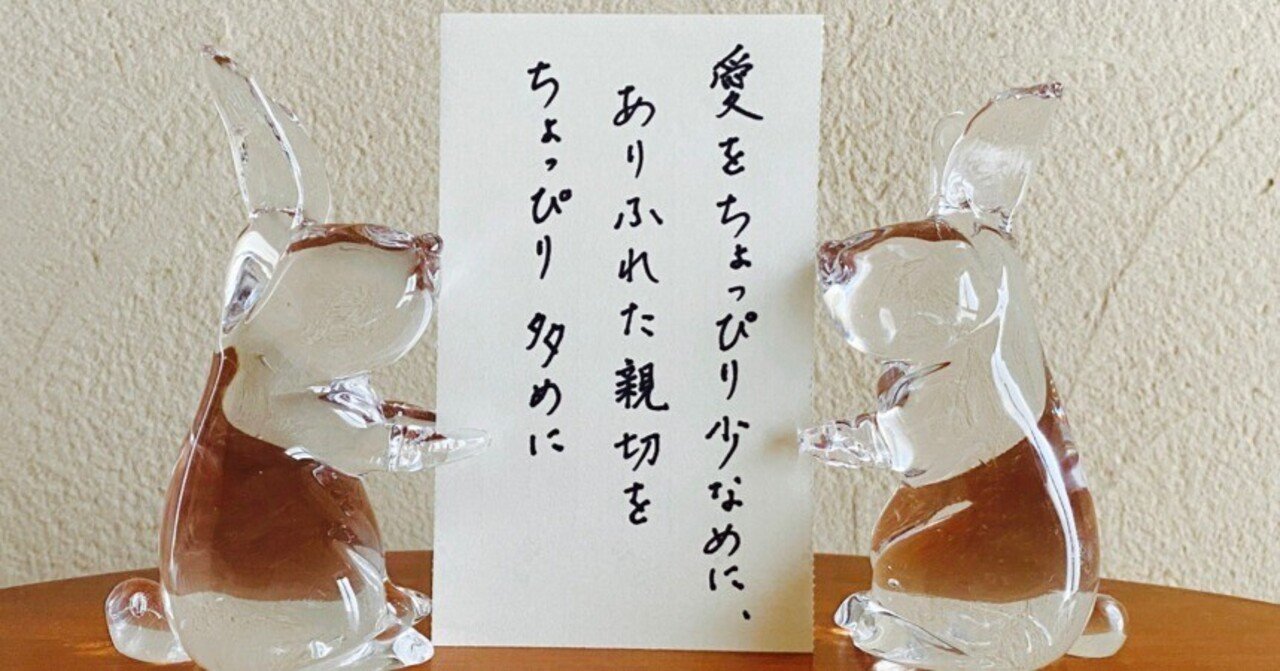 愛をちょっぴり少なめに、
ありふれた親切を
ちょっぴり多めに